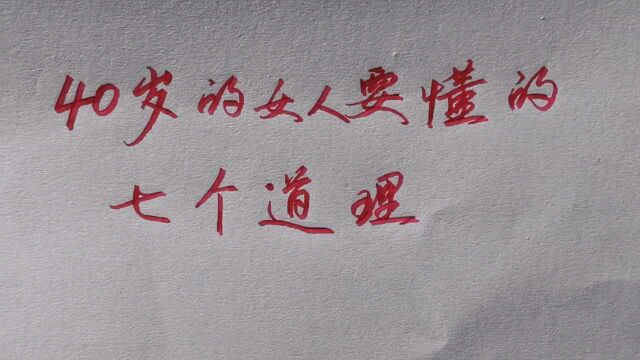 40岁的女人要懂的
七个道理